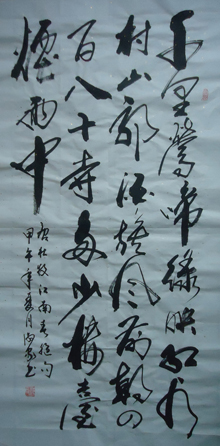 千里鶯啼綠映紅水
村山郭酒旗風南朝四
百八十寺多少樓臺
煙雨中
唐杜牧江南春絕句
甲午年月书